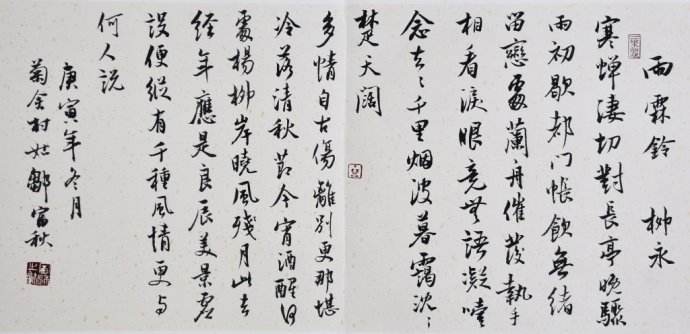 雨霖鈴 柳永
寒蟬淒切對長亭晚驟
雨初歇都門帳飲無緒
留戀處蘭舟催發執手
相看淚眼竟無語凝噎
念去々千里烟波暮靄沈々
楚天闊
多情自古傷離別更那堪
冷落清秋節今宵酒醒何
處楊柳岸曉風殘月此去
經年應是良辰美景虛
設便縱有千種風情更與
何人說
庚寅年冬月
菊舍村姑鄒富秋